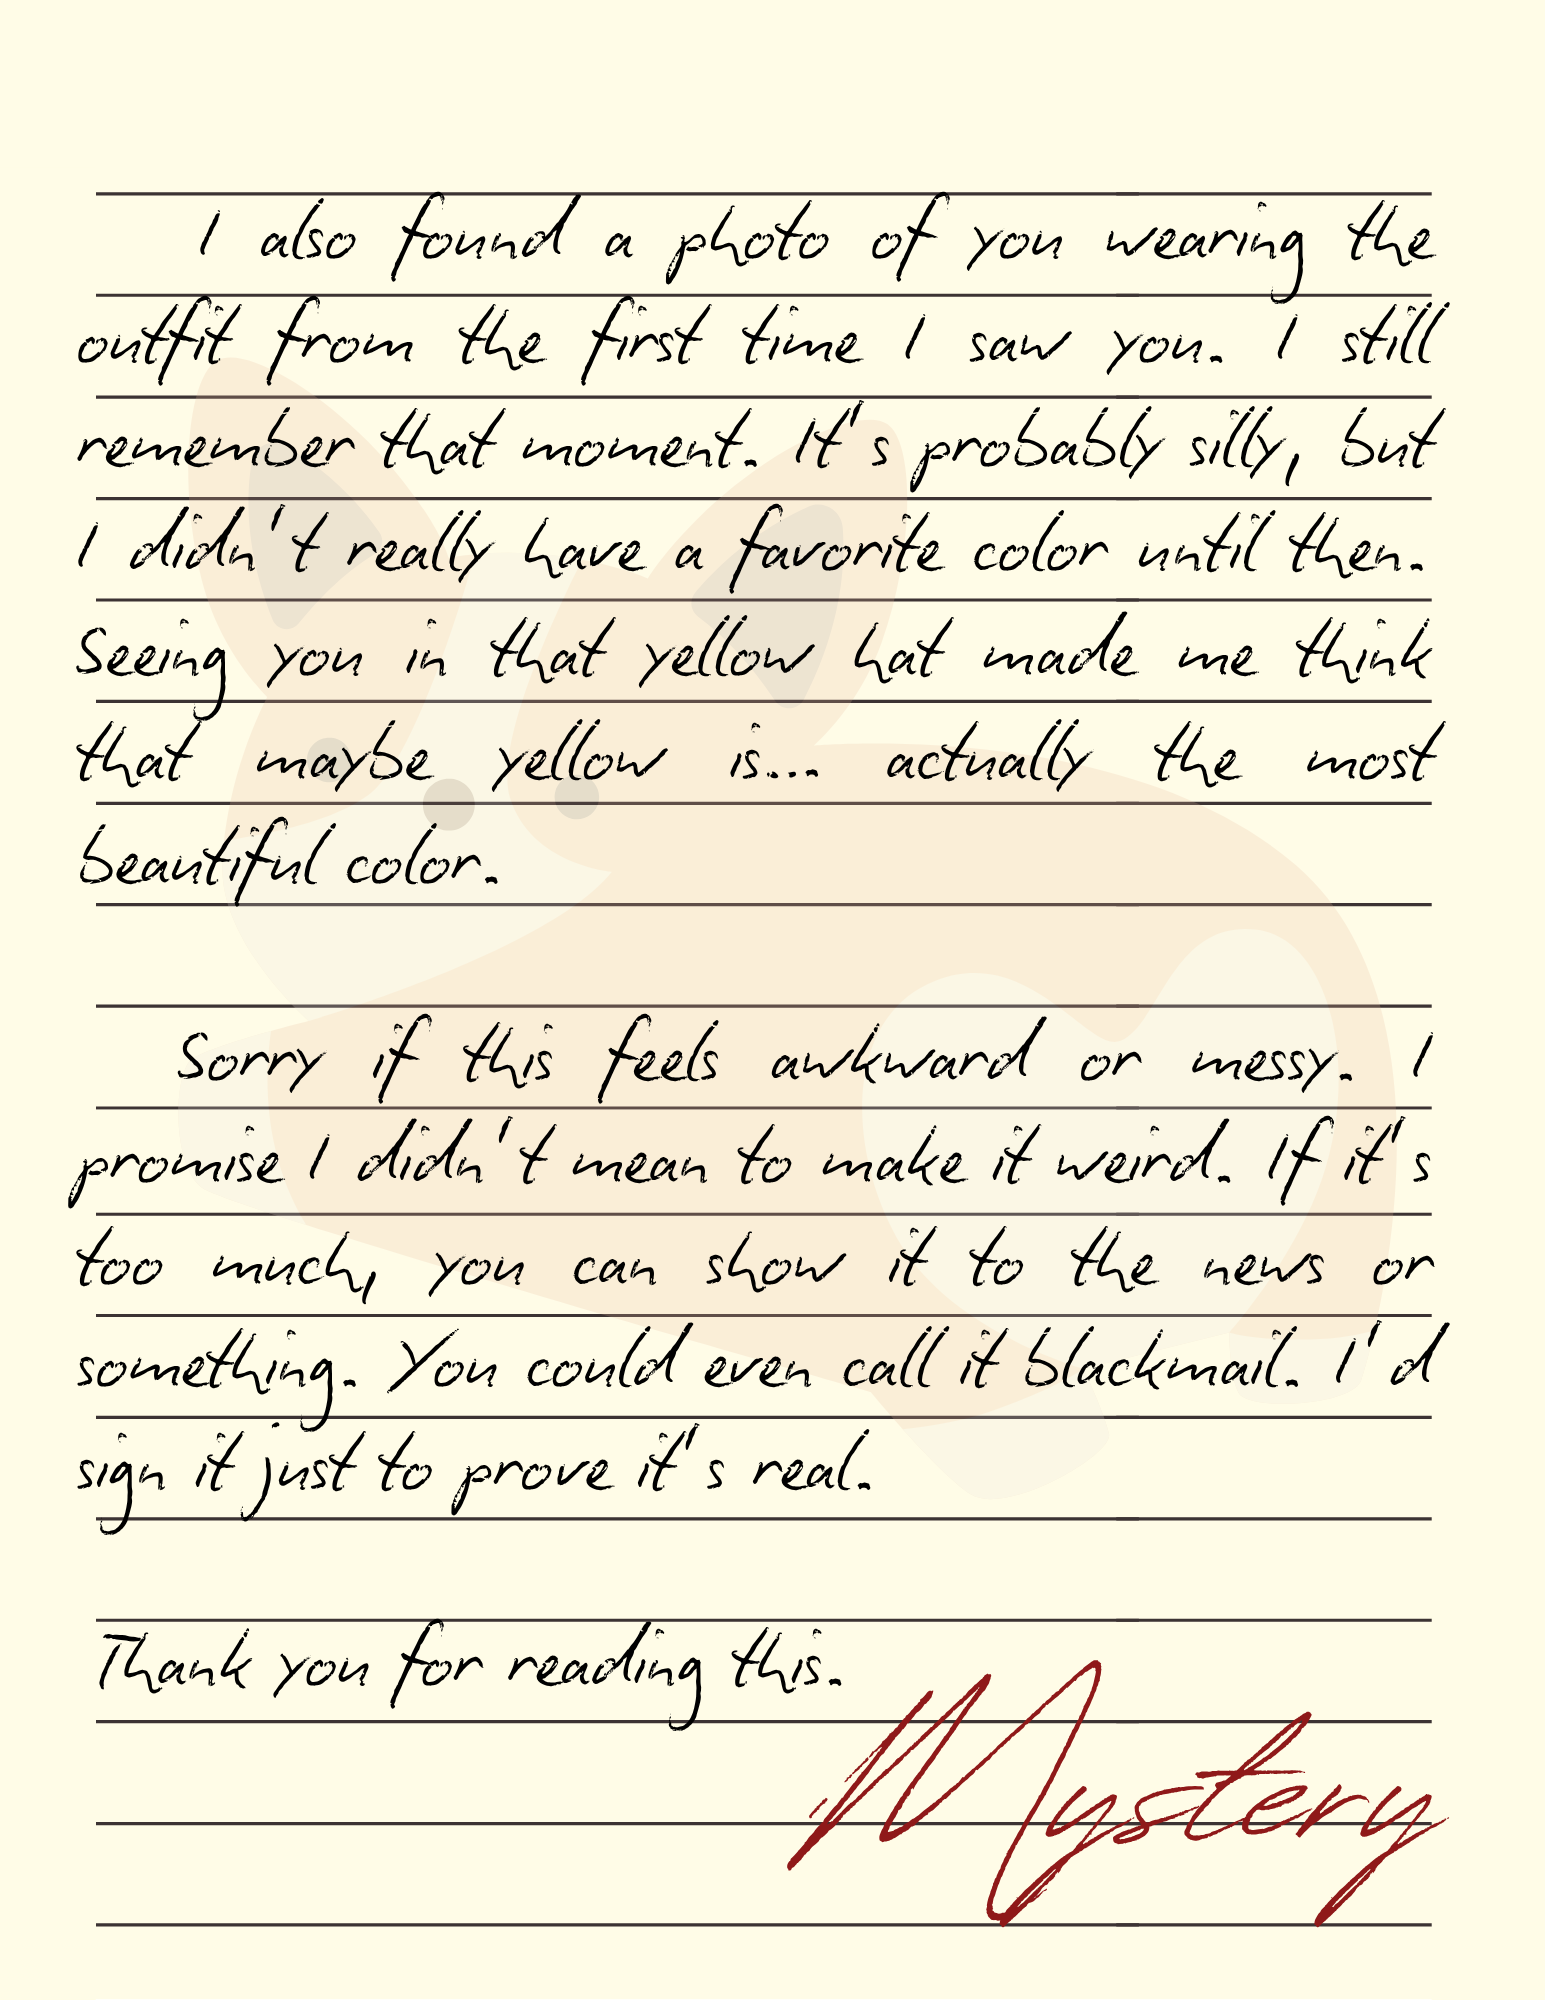 I also found a photo of you wearing the
outfit from the first time I saw you. I still
remember that moment. It's probably silly, but
I didn't really have a favorite color until then.
Seeing you in that yellow hat made me think
that maybe yellow is... actually the most
beautiful color.
Sorry if this feels awkward or messy. I
promise I didn't mean to make it weird. If it's
too much, you can show it to the news or
something. You could even call it blackmail. I'd
sign it just to prove it's real.
Thank you for reading this.
Mystery